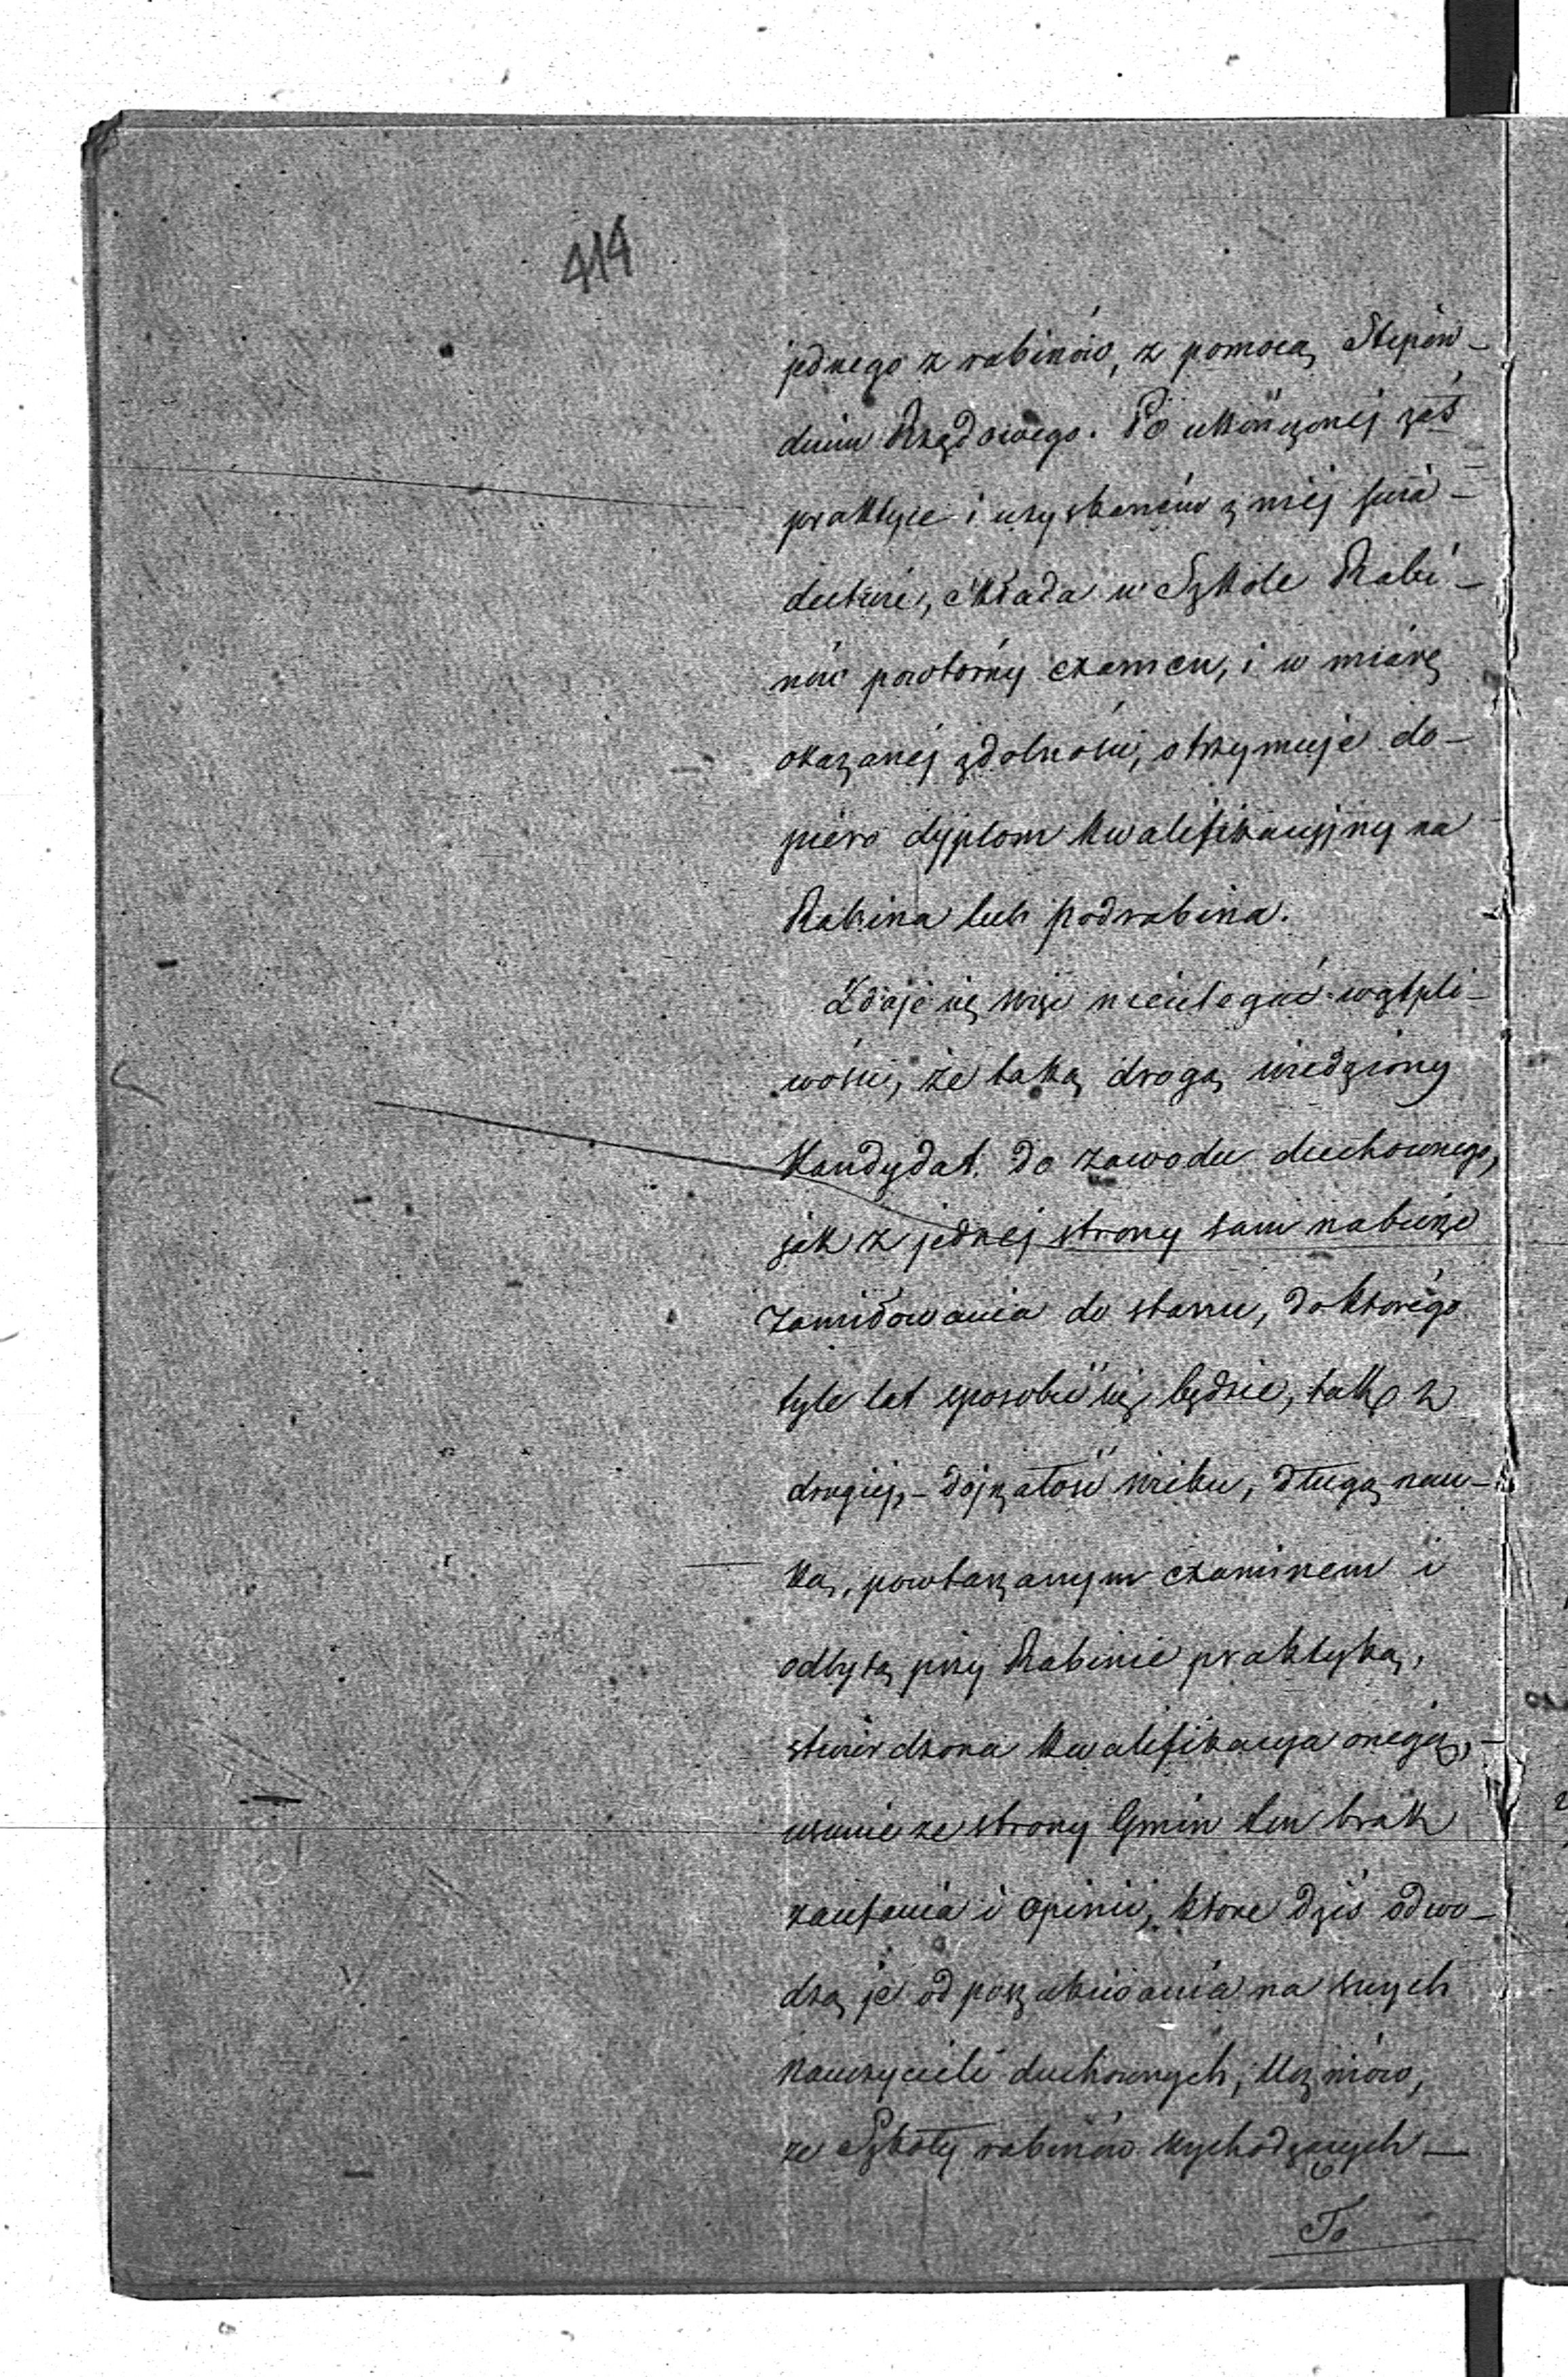 414
jednego z rabinów, z pomocą Stypen-
dium Rządowego. Po ukończonej zaś
praktyce i uzyskaniu z niej świa-
dectwie, składa w Szkole Rabi-
nów powtórny examen, i w miarę
okazanej zdolności, otrzymuje do-
piero dyplom kwalifikacyjny na
Rabina lub podrabina.
Zdaje się więc nieulegać wątpli-
wości, że taką drogą wiedziony
Kandydat do zawodu duchownego,
jak z jednej strony sam nabierze
zamiłowania do stanu, do którego
tyle lat sposobić się będzie, tak z
drugiej, - dojrzałość wieku, długą nau-
ką, powtarzanym examinem i
odbytą przy Rabinie praktyką,
stwierdzona kwalifikacya onegoż, -
usunie ze strony Gmin ten brak
zaufania i opinii, które dziś odwo-
dzą je od poszukiwania na swych
nauczycieli duchownych, Uczniów,
ze Szkoły rabinów wychodzących —
To